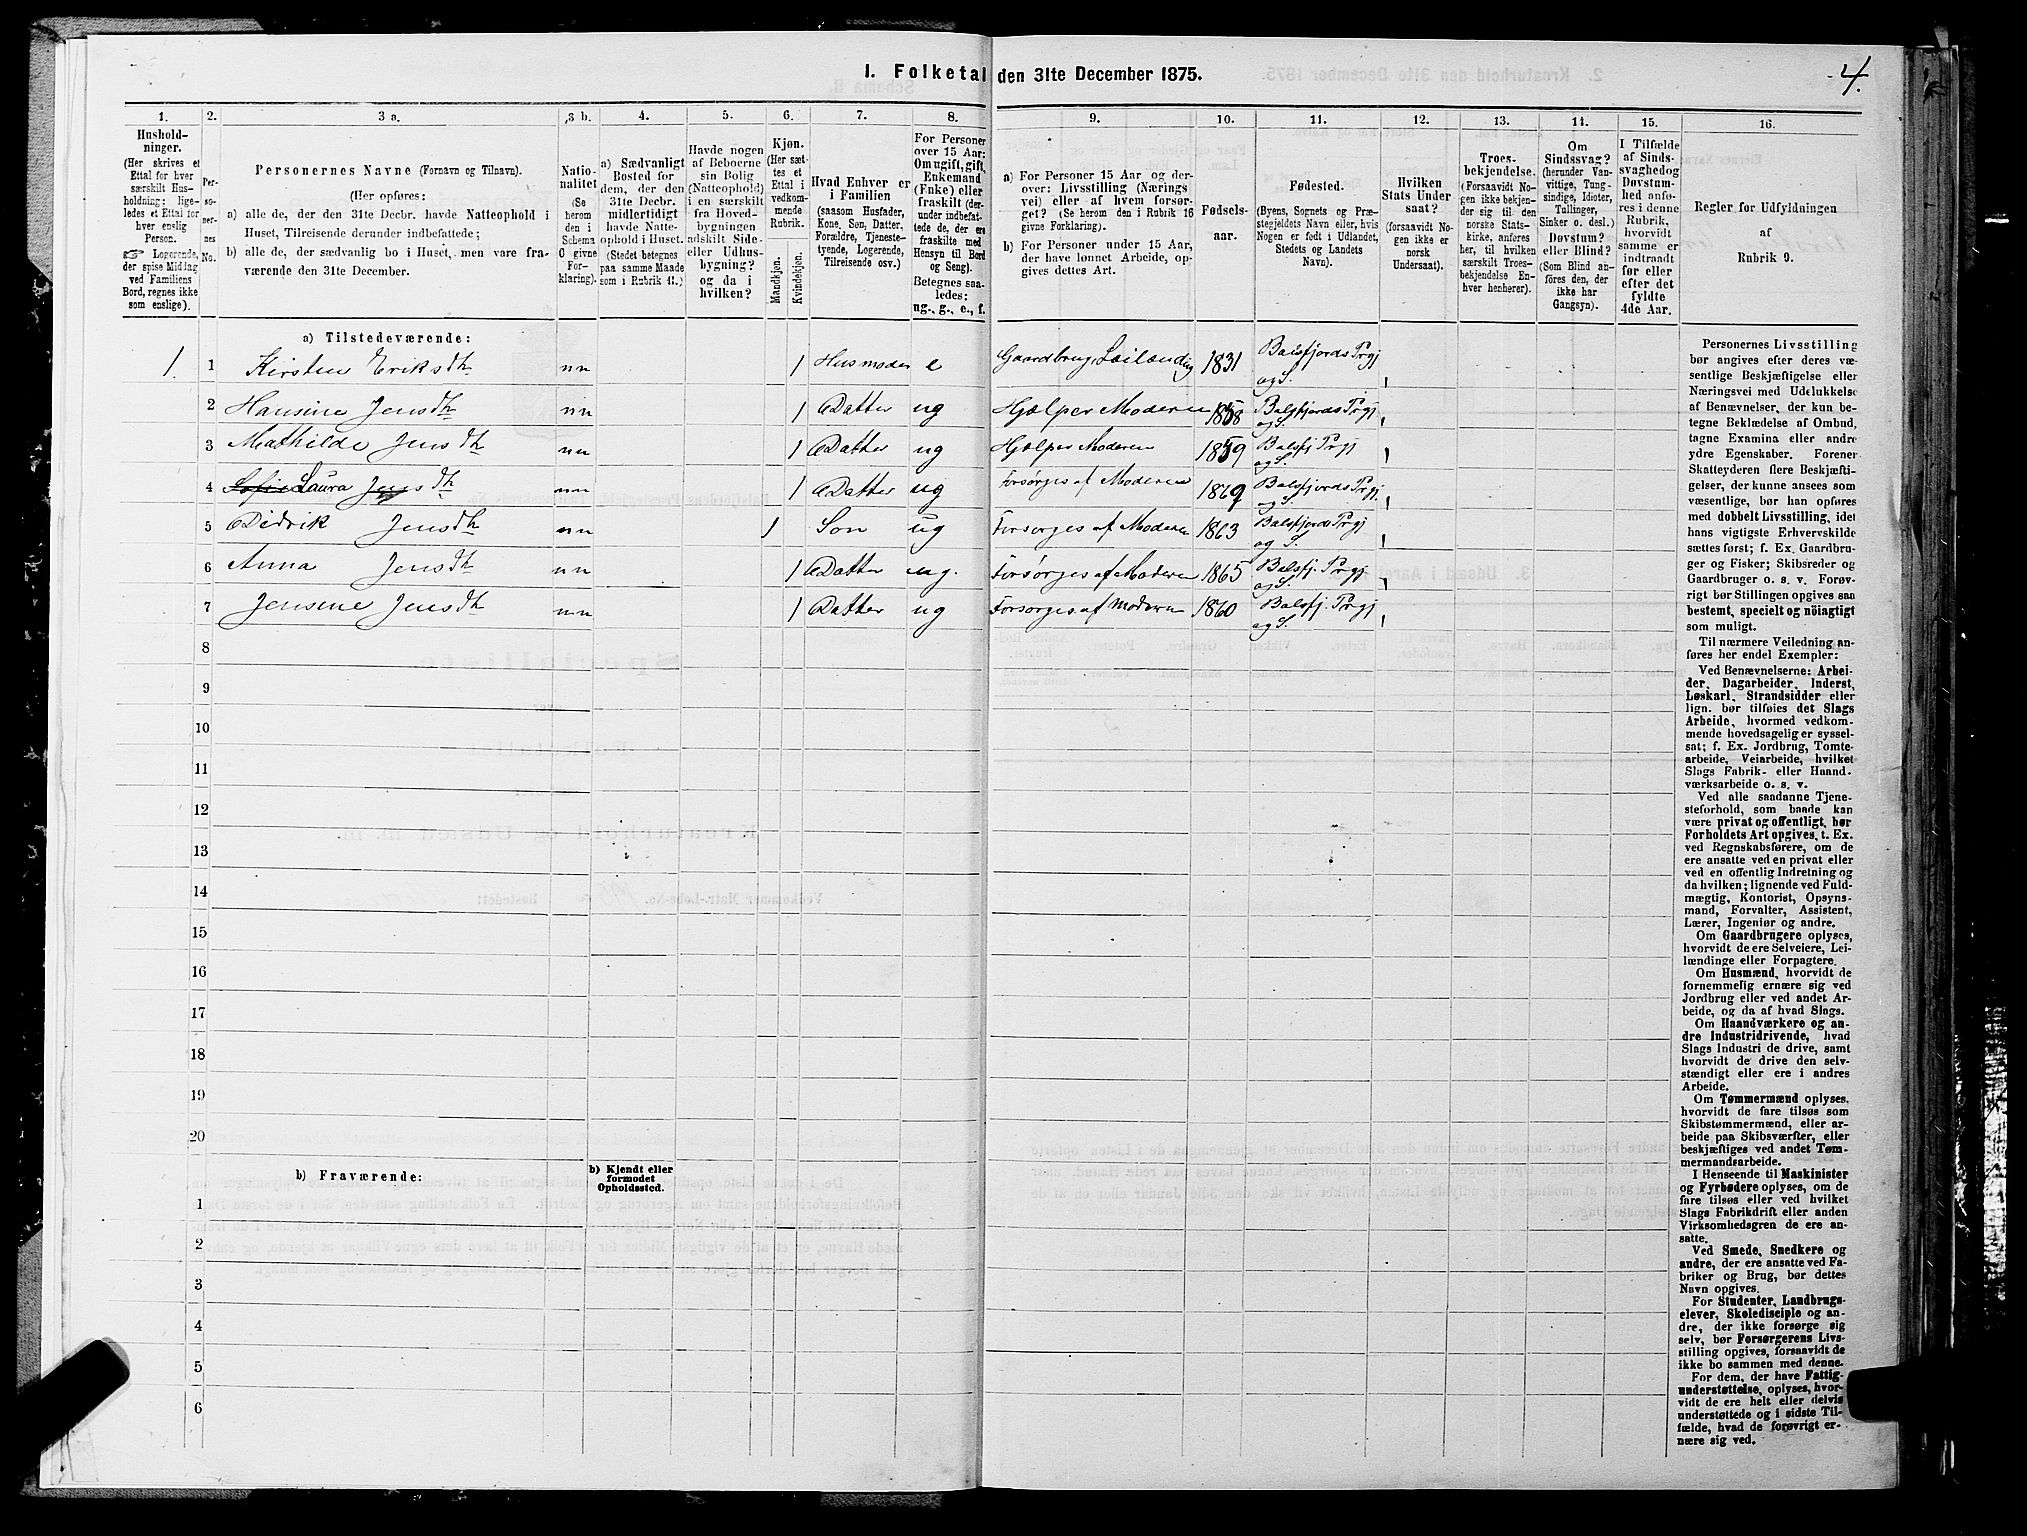 I. Folketal den 31te December 1875.
4.
1. 2. 3 a. 3 b. 4. 5. 6. 7. 8. 9. 10. 11. 12. 13. 14. 15. 16.
Hushold-
ninger.
(Her skrives et
Ettal for hver
særskilt Hus-
holdning; lige-
ledes et Ettal for
hver enslig
Person.
☞ Logerende,
der spise Middag
ved Familiens
Bord, regnes ikke
som enslige).
Per-
so-
ner-
nes
No.
Personernes Navne (Fornavn og Tilnavn).
(Her opføres:
a) alle de, der den 31te Decbr. havde Natteophold i
Huset, Tilreisende derunder indbefattede;
b) alle de, der sædvanlig bo i Huset, men vare fra-
værende den 31te December.
Natio-
nalitet
(Se
herom
den i
Schema
O givne
For-
klaring).
a) Sædvanligt
Bosted for
dem, der den
31te Decbr.
midlertidigt
havde Natte-
ophold i Huset.
(Stedet betegnes
paa samme Maade
som i Rubrik 11.)
Havde nogen
af Beboerne
sin Bolig
(Natteophold)
i en særskilt
fra Hoved-
bygningen
adskilt Side-
eller Udhus-
bygning?
og da i
hvilken?
Kjøn.
(Her sæt-
tes et
Ettal i
vedkom-
mende
Rubrik.
Mandkjøn.
Kvindekjøn.
Hvad Enhver er
i Familien
(saasom Husfader,
Kone, Søn, Datter,
Forældre, Tjeneste-
tyende, Logerende,
Tilreisende osv.)
For Personer
over 15 Aar:
Om ugift, gift,
Enkemand
(Enke) eller
fraskilt (der-
under indbefat-
tede de, der ere
fraskilte med
Hensyn til Bord
og Seng).
Betegnes saa-
ledes:
ug., g., e., f.
a) For Personer 15 Aar og der-
over: Livsstilling (Nærings
vei) eller af hvem forsør-
get? (Se herom den i Rubrik 16
givne Forklaring).
b) For Personer under 15 Aar,
der have lønnet Arbeide, op-
gives dettes Art.
Fødsels-
aar.
Fødested.
(Byens, Sognets og Præ-
stegjeldets Navn eller, hvis
Nogen er født i Udlandet,
Stedets og Landets
Navn).
Hvilken
Stats Under
saat?
(forsaavidt No-
gen ikke er
norsk
Undersaat).
Troes-
bekjendelse.
(Forsaavidt No-
gen ikke bekjen-
der sig til den
norske Stats-
kirke, anføres
her, til hvilken
særskilt Troes-
bekjendelse En-
hver henhører).
Om
Sindssvag?
(herunder Van-
vittige, Tung-
sindige, Idioter,
Tullinger,
Sinker o. desl.)
Døvstum?
eller Blind?
(Som Blind an-
føres den, der
ikke har
Gangsyn).
I Tilfælde
af Sinds-
svaghed og
Døvstum-
hed anfø-
res i denne
Rubrik,
hvorvidt
samme er
indtraadt
før eller
efter det
fyldte
4de Aar.
Regler for Udfyldningen
af
Rubrik 9.
a) Tilstedeværende:
1. 1 Kirsten Eriksdtr nn 1 Husmoder e Gaardbrug Leilænding 1831 Balsfjords Prgj og S.
2 Hansine Jensdtr nn 1 Datter ug Hjælper Moderen 1858 Balsfjords Prgj og S.
3 Mathilde Jensdtr nn 1 Datter ug Hjælper Moderen 1859 Balsfj Prgj og S.
4 Sofie Laura Jensdtr nn 1 Datter ug Forsørges af Moderen 1869 Balsfjords Prgj. og S.
5 Didrik Jensdtr nn 1 Søn ug Forsørges af Moderen 1863 Balsfjords Prgj og S.
6 Anna Jensdtr nn 1 Datter ug. Forsørges af Moderen 1865 Balsfj. Prgj. og S.
7 Jensine Jensdtr nn 1 Datter ug Forsørges af Moderen 1860 Balsfj. Prgj og S.
8
9
10
11
12
13
14
15
16
17
18
19
20
b) Fraværende:
b) Kjendt eller
formodet
Opholdssted.
1
2
3
4
5
6
Personernes Livsstilling
bør angives efter deres væ-
sentlige Beskjæftigelse eller
Næringsvei med Udelukkelse
af Benævnelser, der kun be-
tegne Beklædelse af Ombud,
tagne Examina eller andre
ydre Egenskaber. Forener
Skatteyderen flere Beskjæfti-
gelser, der kunne ansees som
væsentlige, bør han opføres
med dobbelt Livsstilling, idet
hans vigtigste Erhvervskilde
sættes først; f. Ex. Gaardbru-
ger og Fisker; Skibsreder og
Gaardbruger o. s. v. Forøv-
rigt bør Stillingen opgives saa
bestemt, specielt og nöiagtigt
som muligt.
Til nærmere Veiledning an-
føres her endel Exempler:
Ved Benævnelserne: Arbei-
der, Dagarbeider, Inderst,
Løskarl, Strandsidder eller
lign. bør tilføies det Slags
Arbeide, hvormed vedkom-
mende hovedsagelig er syssel-
sat; f. Ex. Jordbrug, Tomte-
arbeide, Veiarbeide, hvilket
Slags Fabrik- eller Haand-
værksarbeide o. s. v.
Ved alle saadanne Tjene-
steforhold, som baade kan
være privat og offentligt, bør
Forholdets Art opgives, t. Ex.
ved Regnskabsførere, om de
ere ansatte ved en privat eller
ved en offentlig Indretning og
da hvilken; lignende ved Fuld-
mægtig, Kontorist, Opsyns-
mand, Forvalter, Assistent,
Lærer, Ingeniør og andre.
Om Gaardbrugere oplyses,
hvorvidt de ere Selveiere, Lei-
lændinge eller Forpagtere.
Om Husmænd, hvorvidt de
fornemmelig ernære sig ved
Jordbrug eller ved andet Ar-
beide, og da af hvad Slags.
Om Haandværkere og an-
dre Industridrivende, hvad
Slags Industri de drive, samt
hvorvidt de drive den selv-
stændigt eller ere i andres
Arbeide.
Om Tømmermænd oplyses,
hvorvidt de fare tilsøs som
Skibstømmermænd, eller ar-
beide paa Skibsværfter, eller
beskjæftiges ved andet Tøm-
mermandsarbeide.
I Henseende til Maskinister
og Fyrbødere oplyses, om de
fare tilsøs eller ved hvilket
Slags Fabrikdrift eller anden
Virksomhedsgren de ere an-
satte.
Ved Smede, Snedkere og
andre, der ere ansatte ved Fa-
briker og Brug, bør dettes
Navn opgives.
For Studenter, Landbrugs-
elever, Skoledisciple og an-
dre, der ikke forsørge sig
selv, bør Forsørgerens Livs-
stilling opgives, forsaavidt de
ikke bo sammen med denne.
For dem, der have Fattig-
understøttelse, oplyses, hvor-
vidt de ere helt eller delvis
understøttede og i sidste Til-
fælde, hvad de forøvrigt er-
nære sig ved.